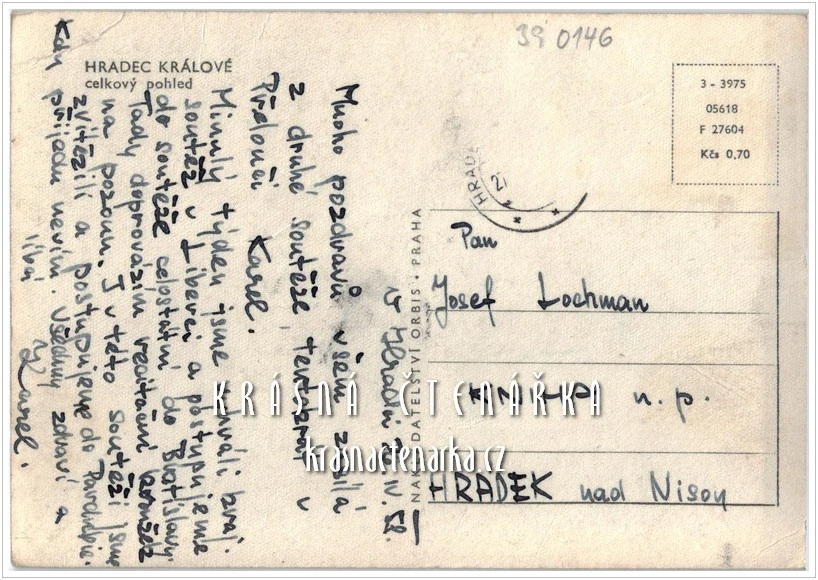 39 0146
HRADEC KRÁLOVÉ
celkový pohled
3 - 3975
05618
F 27604
Kčs 0,70
HRADE
21
v Hradci 21. IV. 58.
Mnoho pozdravů všem zasílá
z druhé soutěže, tentokrát v
Karel.
Minulý týden jsme hráli kraj.
soutěž v Liberci a postupujeme
do soutěže celostátní do Bratislavy.
Tady doprovázím recitační kroužek
na pozoun. I v této soutěži jsme
zvítězili a postupujeme do Pardubic.
Kdy přijedu nevím. Všechny zdraví a
líbá
Karel.
NAKLADATELSTVÍ ORBIS • PRAHA
Pan
Josef Lochman
KNIHA n. p.
HRADEK nad Nisou
KRÁSNÁ ČTENÁŘKA
krasnactenarka.cz